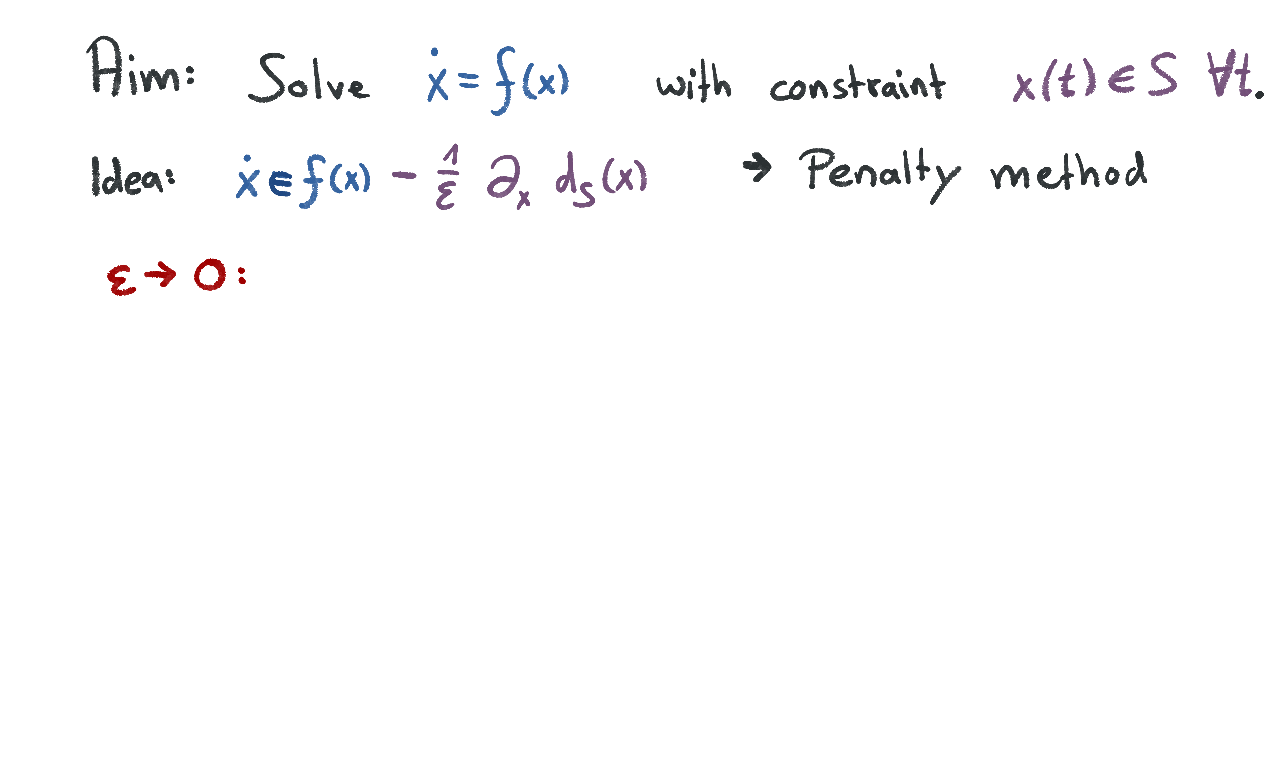 Aim: Solve ẋ = f(x) with constraint x(t) ∈ S ∀t.
Idea: ẋ ∈ f(x) − 1/ε ∂ₓ d_S(x) → Penalty method
ε → 0: